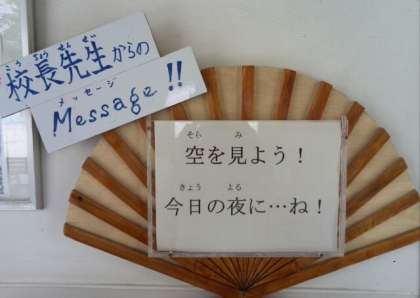 こうちょうせんせい
校長先生からの
メッセージ
Message!!
そら み
空を見よう!
きょう よる
今日の夜に…ね!